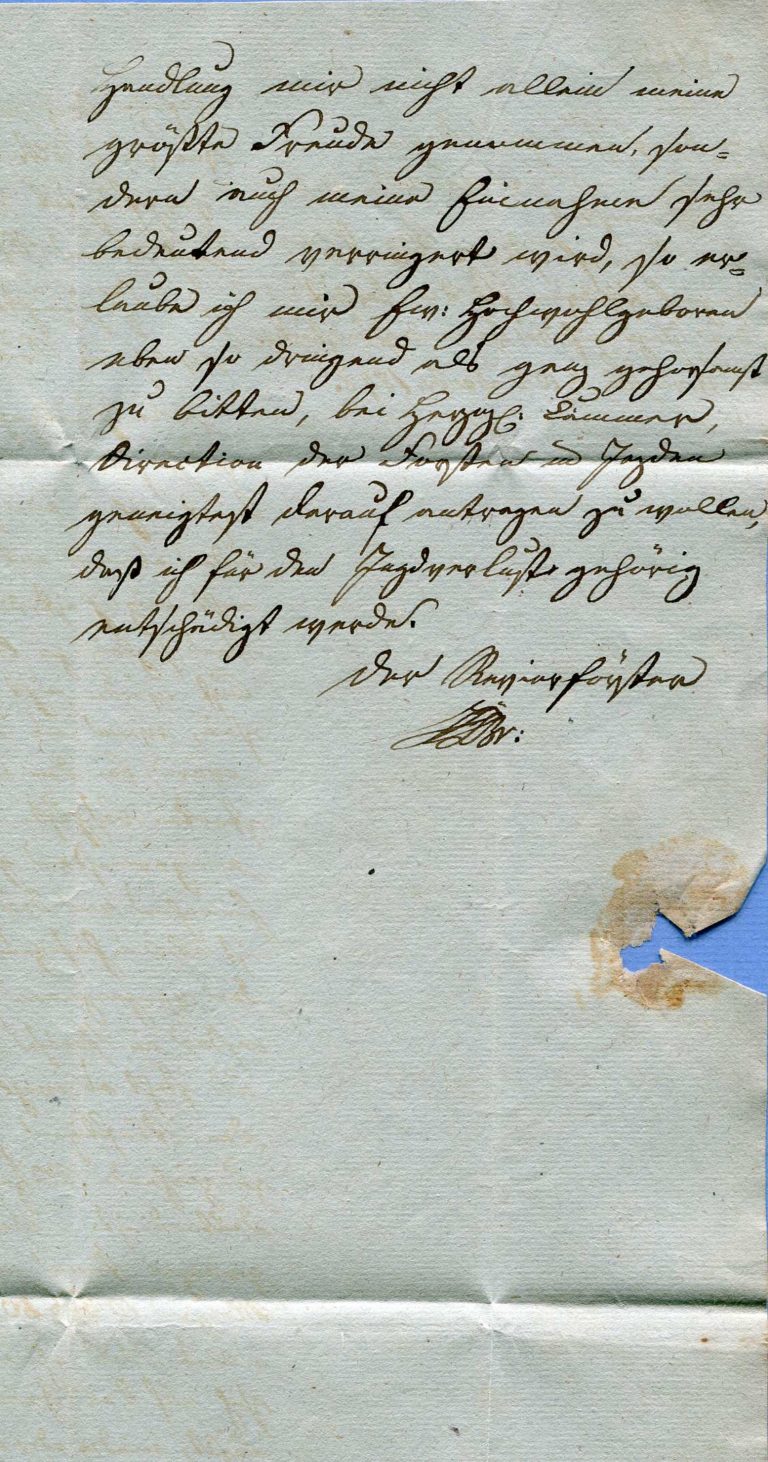 Handlung mir nicht allein meine
größte Freude genommen, son=
dern auch meine Einnahme sehr
bedeutend verringert wird, so er=
laube ich mir Ew: Hochwohlgeboren
eben so dringend als ganz gehorsamst
zu bitten, bei Herzgl: Cammer,
Direction der Forsten u Jagden
geneigtest darauf antragen zu wollen,
daß ich für den Jagdverlust gehörig
entschädigt werde.
Der Revierförster